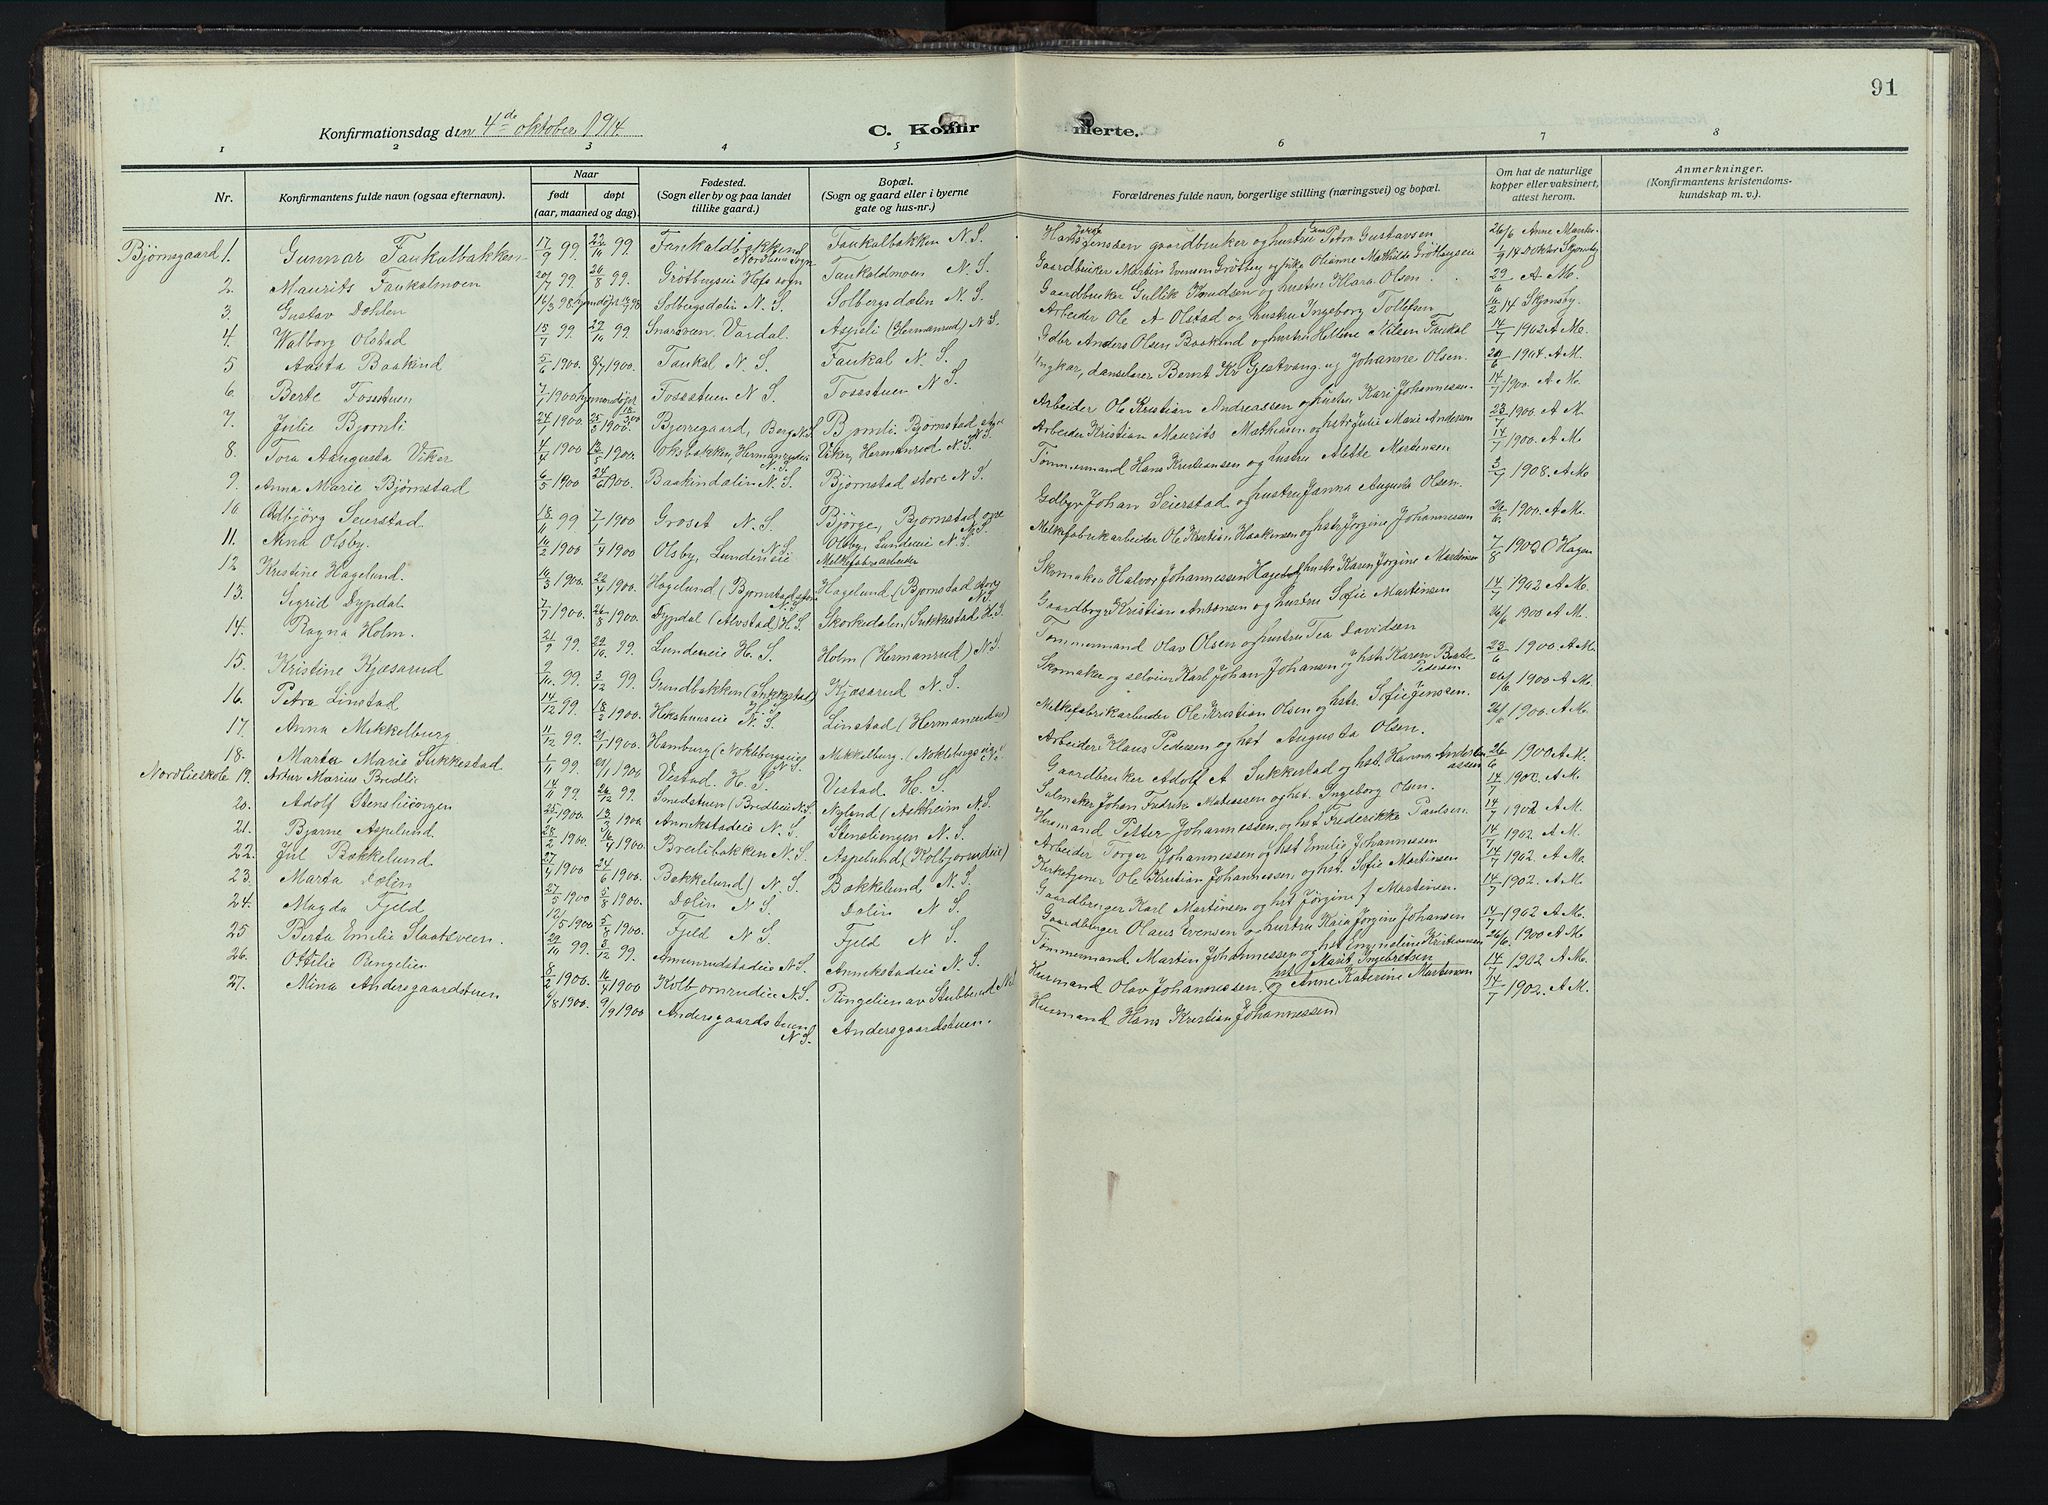 91
Konfirmationsdag den 4de oktober 1914
C. Konfirmerte.
1 2 3 4 5 6 7 8
Nr. Konfirmantens fulde navn (ogsaa efternavn). Naar født døpt (aar, maaned og dag). Fødested. (Sogn eller by og paa landet tillike gaard.) Bopæl. (Sogn og gaard eller i byerne gate og hus-nr.) Forældrenes fulde navn, borgerlige stilling (næringsvei) og bopæl. Om hat de naturlige kopper eller vaksinert, attest herom. Anmerkninger. (Konfirmantens kristendomskundskap m. v.).
Bjørnsgaard 1. Gunnar Faukalbakken 17/9 99. 22/10 99. Faukaldbakken Nordlien Sogn Faukalbakken N. S. Hans Jensen gaardbruker og hustru Petra Gustavsen
2. Maurits Faukalmoen 20/7 99. 20/8 99. Grøtbergseie Hofs sogn Faukaldmoen N. S. Gaardbruker Martin Evensen Grøtberg og pike Olianne Mathilde Grøtbergseie 29/6 A. M.
3. Gustav Dæhlen 16/3 98. Solbergsdalen N. S. Solbergsdælen N. S. Gaardbruker Gullik Knudsen og hustru Klara Olsen. 14 Skjønsby.
4. Walborg Olstad 15/7 99. 22/10 99. Snarsveen, Vardal. Aspeli (Hermanrud) N. S. Arbeider Ole A Olstad og hustru Ingeborg Tollefsen 14/7 1902 A M.
5 Aasta Baakind 5/6 1900. 8/7 1900. Faukal N. S. Faukal N. S. Gdbr Anders Olsen Baakind og hustru Hellene Nilsen Faukal 1904 A M.
6. Berte Fossstuen 7/1 1900 Fossstuen N S. Fossstuen N S. Ungkar, danselærer Bernt Kr Gjestvang og Johanne Olsen. 14/7 1900. A M.
7. Julie Bjørnli 24/2 1900. 25/3 1900. Bjerregaard, Berg N. S Bjørnli. Bjørnstad store N. S. Arbeider Ole Kristian Andreassen og hustru Kari Johannessen 23/7 1900. A M.
8. Tora Aaugusta Viker 4/4 1900 13/5 1900. Oksbakken, Hermanrudeie N. S. Viker, Hermanrud N. S. Arbeider Kristian Maurits Mathiasen og hstr Julie Marie Andersen 14/7 1900. A M.
9. Anna Marie Bjørnstad 6/5 1900 24/6 1900. Baakindalin N. S. Bjørnstad store N. S. Tømmermand Hans Kristiansen og hustru Alette Martensen 3/7 1908. A M.
10 Odbjörg Seierstad 18/11 99 7/1 1900 Groset N. S. Bjørge, Bjørnstad N. S. Gdbgr Johan Seierstad og hustru Janna Augusta Olsen. A M.
11. Anna Olsby. 1900 1/4 1900 Olsby, Lundeneie N. S. Olsby, Lundeneie N. S. Melkefabrikarbeider Ole Kristian Haakinsen og hstr Jørgine Johannessen 7/8 Hagen
12 Kristine Hagelund. 1900. 22/4 1900. Hagelund (Bjørnstad store N. S. Hagelund (Bjørnstad store N. S. Skomaker Halvor Johannessen Hagebg hustr Karen Jørgine Martinsen 14/7 1902 A M.
13. Sigrid Dypdal 7/7 1900. 26/8 1900. Dypdal (Alvstad) H. S. Skorkedalen (Sukkestad H. S. Gaardbgr Kristian Antonsen og hustru Sofie Martinsen 26/6 1900 A M.
14. Ragna Holm. 21/9 99. 22/10 99. Lundeneie H. S. Holm (Hermanrud) N. S Tømmermand Olav Olsen og hustru Tea Davidsen 23/6 1900. A M.
15. Kristine Kjæsarud 9/10 99. 3/12 99. Grundbakken (Sukkestad) H. S. Kjæsarud N. S. Skomaker og selveier Karl Johan Johansen og hstr Karen Berte Pedersen 26/6 1900 A M.
16. Petra Linstad 14/12 99. 18/2 1900. N. S. Linstad (Hermanrudeie) Melkefabrikarbeider Ole Kristian Olsen og hstr Sofie Jenssen. 26/6 1900. A M.
17. Anna Mekkelburg 11/12 99. 21/1 1900. Hamburg (Noklebergseie N. S. Mekkelburg. (Noklebergseie Arbeider Klaus Pedersen og hst Augusta Olsen.
18. Marta Marie Sukkestad 1/11 99. 21/1 1900 Vestad. H. S. Vestad H. S. Gaardbruker Adolf A. Sukkestad og hst Hanna Andreassen 26/6 1900 A M.
Nordlieskole 19. Artur Marius Bredlie 14/11 99. 26/12 99. Smedstuen (Bredlieie N. S. Nyland (Askheim N. S. Salmaker Johan Fredrik Matiassen og hst. Ingeborg Olsen. 14/7 A M.
20. Adolf Stensliengen 25/1 1900. 13/3 1900. Annikstadeie N. S. Stensliengen N. S. Husmand Petter Johannessen og hst Frederikke Paulsen. 14/7 1902 A M.
21. Bjarne Aspelund 28/2 1900. 16/4 1900. Breilibakken N. S. Aspelund (Kolbjørnrudeie) Arbeider Torger Johannessen og hst Emilie Johannessen 14/7 1902. A M.
22. Jul Bakkelund 27/4 1900 24/6 1900. Bakkelund) N. S. Bakkelund N. S. Kirketjener Ole Kristian Johannessen og hst. Sofie Martinsen 14/7 1902. A M.
23. Marta Dælin 27/5 1900 5/8 1900. Dælin N. S. Dælin N. S. Gaardbruger Karl Martinsen og hst Jørgine J Martinsen. 14/7 1902. A M.
24. Magda Fjeld 12/5 1900. 5/8 1900. Fjeld N. S. Fjeld N. S. Gaardbruger Olaus Evensen og hustru Kaia Jørgine Johansen 14/7 1902 A M.
25 Berta Emilie Slaatsveen. 29/10 99. 3/12 99. Annikstadeie N. S. Tømmermand Martin Johannessen og hst Engeline Kristiansen 26/6. 1900 A M.
26. Ottilie Ringelien 8/2 1900. 16/4 1900 Kolbjørnrudeie N. S. Ringelien av Stubberud N. S Husmand Olav Johannessen. hst Marit Ingebretsen 14/7 1902 A M.
27. Mina Andersgaardstuen 1900. 9/9 1900 Andersgaardstuen N. S. Andersgaardstuen. Husmand Hans Kristian Johannessen og Anne Katerine Martinsen 14/7 1902. A M.